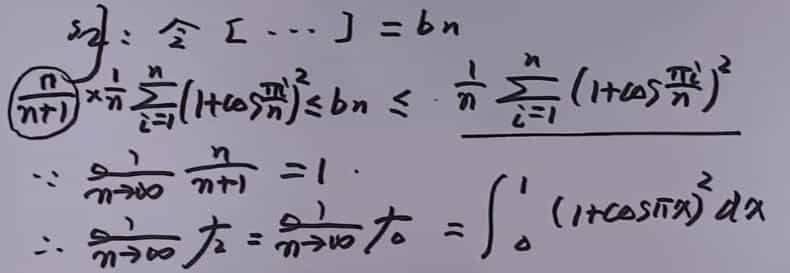 S2: 令 [ ... ] = bn
n/(n+1) × 1/n ∑_{i=1}^{n} (1+cos πi/n)² ≤ bn ≤ 1/n ∑_{i=1}^{n} (1+cos πi/n)²
∵ n→∞ n/(n+1) = 1.
∴ n→∞ 左 = n→∞ 右 = ∫₀¹ (1+cosπx)² dx